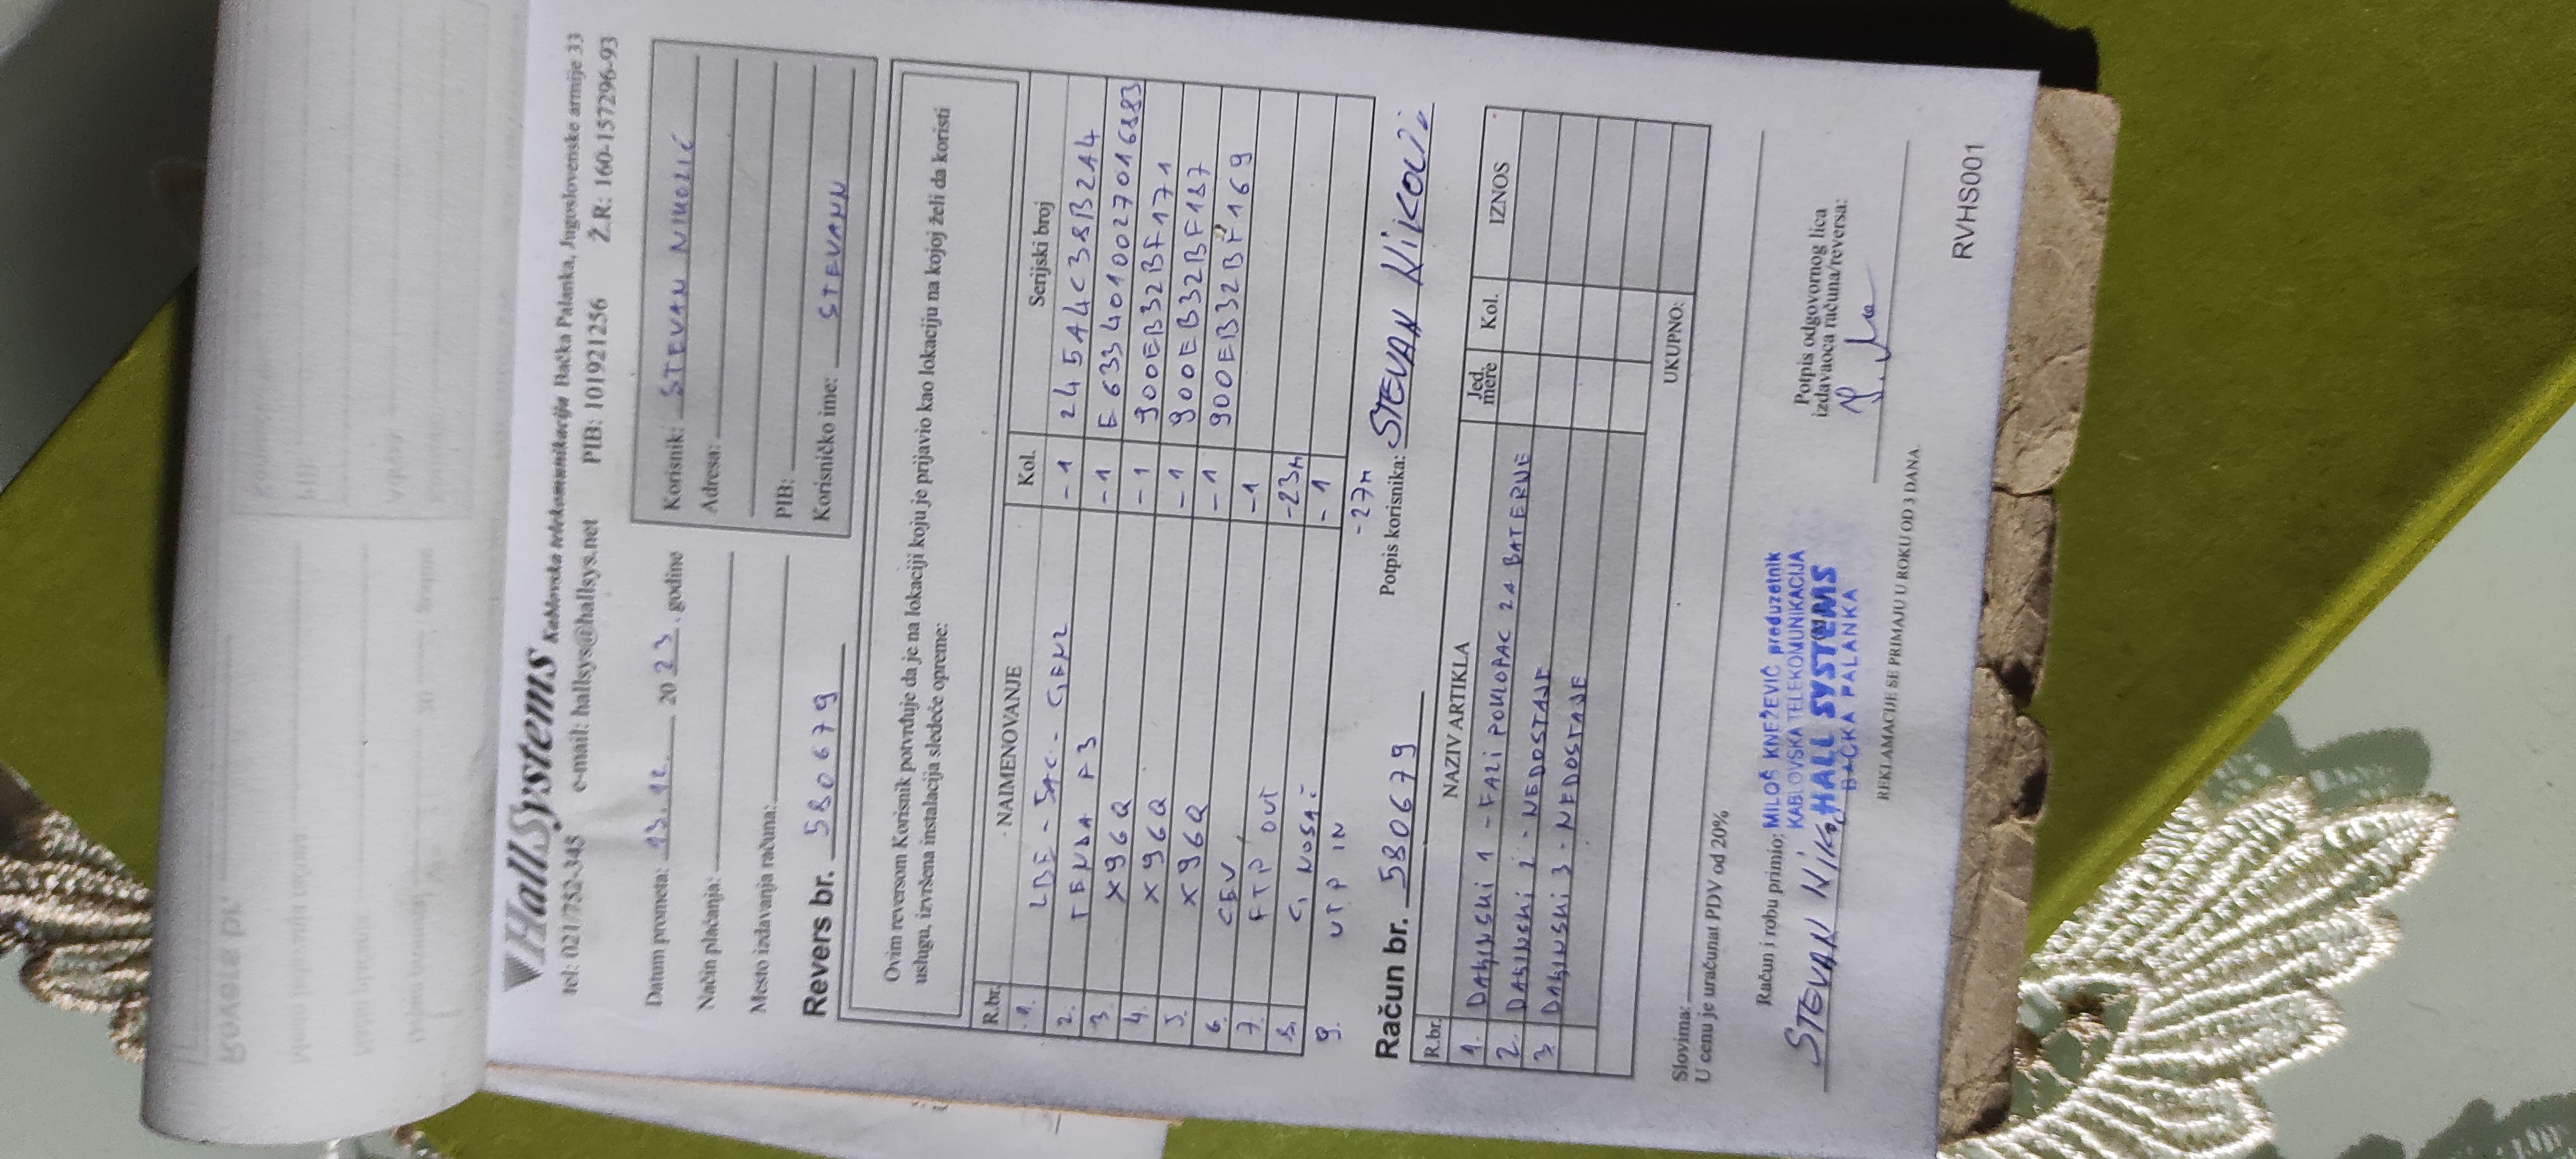 HallSystems Kablovska telekomunikacija Bačka Palanka, Jugoslovenske armije 33
tel: 021/752-345 e-mail: hallsys@hallsys.net PIB: 101921256 Ž.R: 160-157296-93
Datum prometa: 13.12. 2023. godine
Način plaćanja:
Mesto izdavanja računa:
Korisnik: STEVAN NIKOLIĆ
Adresa:
PIB:
Korisničko ime: STEVANN
Revers br. 580679
Ovim reversom Korisnik potvrđuje da je na lokaciji koju je prijavio kao lokaciju na kojoj želi da koristi
uslugu, izvršena instalacija sledeće opreme:
R.br. NAIMENOVANJE Kol. Serijski broj
1. LBE-5AC-GEN2 -1 245A4C38B2A4
2. TENDA F3 -1 E6334010027016883
3. X96Q -1 900EB32BF171
4. X96Q -1 900EB32BF187
5. X96Q -1 900EB32BF169
6. CEV -1
7. FTP OUT -23m
8. G. NOSAČ -1
9. UTP IN -27m
Potpis korisnika: STEVAN Nikolić
Račun br. 580679
R.br. NAZIV ARTIKLA Jed. mere Kol. IZNOS
1. DALJINSKI 1 - FALI POKLOPAC ZA BATERIJE
2. DALJINSKI 2 - NEDOSTAJE
3. DALJINSKI 3 - NEDOSTAJE
UKUPNO:
Slovima:
U cenu je uračunat PDV od 20%
Račun i robu primio:
STEVAN Niko
MILOŠ KNEŽEVIĆ preduzetnik
KABLOVSKA TELEKOMUNIKACIJA
HALL SYSTEMS
BAČKA PALANKA
Potpis odgovornog lica
izdavaoca računa/reversa:
REKLAMACIJE SE PRIMAJU U ROKU OD 3 DANA
RVHS001